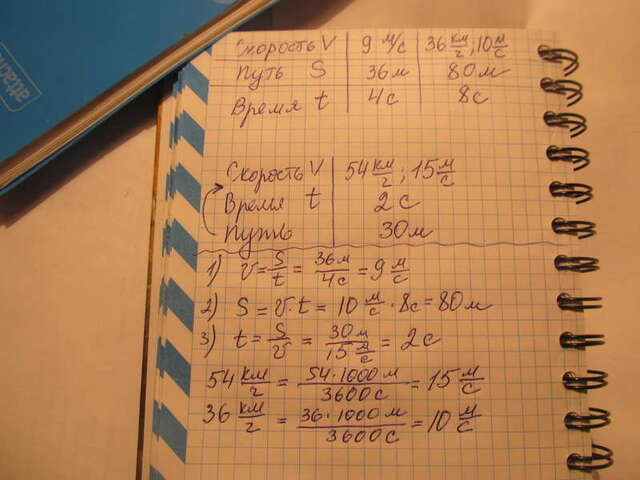 attache
Скорость V 9 м/с 36 км/ч; 10 м/с
Путь S 36 м 80 м
Время t 4 с 8 с
Скорость V 54 км/ч; 15 м/с
Время t 2 с
Путь 30 м
1) v = S/t = 36 м/4 с = 9 м/с
2) S = v · t = 10 м/с · 8 с = 80 м
3) t = S/v = 30 м/15 м/с = 2 с
54 км/ч = 54·1000 м/3600 с = 15 м/с
36 км/ч = 36·1000 м/3600 с = 10 м/с